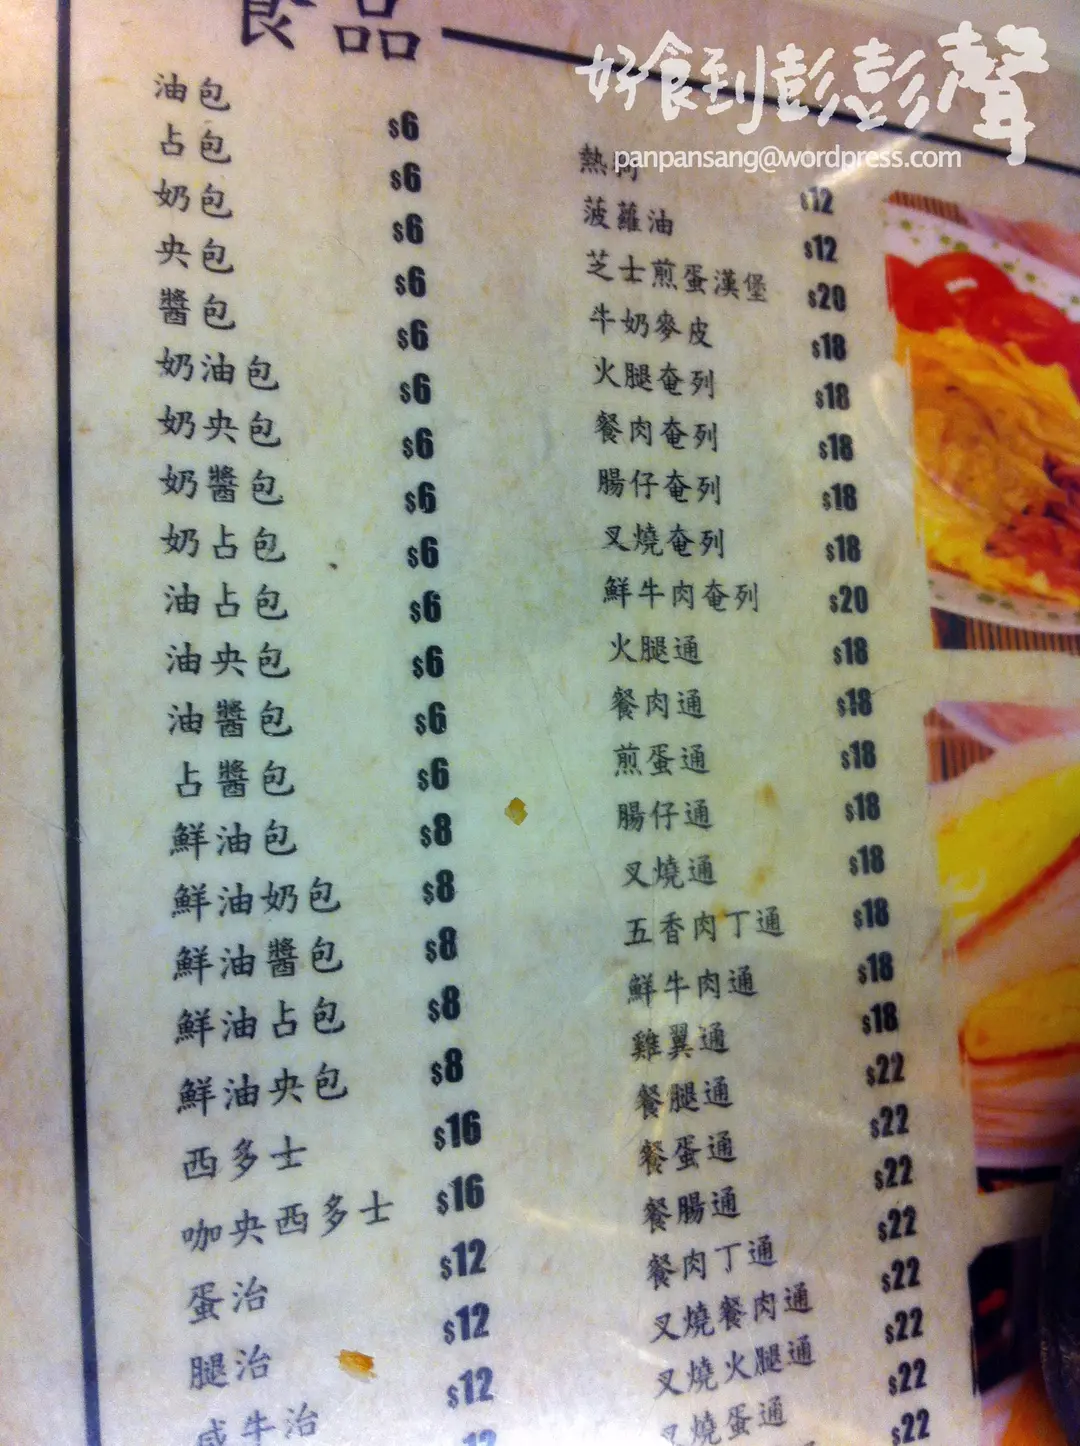 食品
好食到彭彭聲
panpansang@wordpress.com
油包 $6
占包 $6
奶包 $6
央包 $6
醬包 $6
奶油包 $6
奶央包 $6
奶醬包 $6
奶占包 $6
油占包 $6
油央包 $6
油醬包 $6
占醬包 $6
鮮油包 $8
鮮油奶包 $8
鮮油醬包 $8
鮮油占包 $8
鮮油央包 $8
西多士 $16
咖央西多士 $16
蛋治 $12
腿治 $12
咸牛治 $12
熱狗 $12
菠蘿油 $12
芝士煎蛋漢堡 $20
牛奶麥皮 $18
火腿奄列 $18
餐肉奄列 $18
腸仔奄列 $18
叉燒奄列 $18
鮮牛肉奄列 $20
火腿通 $18
餐肉通 $18
煎蛋通 $18
腸仔通 $18
叉燒通 $18
五香肉丁通 $18
鮮牛肉通 $18
雞翼通 $18
餐腿通 $22
餐蛋通 $22
餐腸通 $22
餐肉丁通 $22
叉燒餐肉通 $22
叉燒火腿通 $22
叉燒蛋通 $22
$22